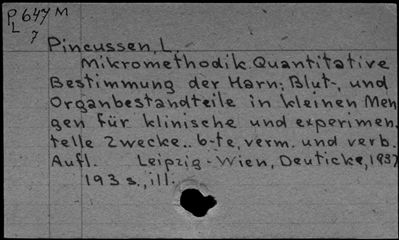 P 647 M
L
7
Pincussen, L.
Mikromethodik. Quantitative
Bestimmung der Harn-, Blut-, und
Organbestandteile in kleinen Men-
gen für klinische und experimen.
telle Zwecke.. 6-te, verm. und verb.
Aufl. Leipzig-Wien, Deuticke, 1937
193 s., ill.